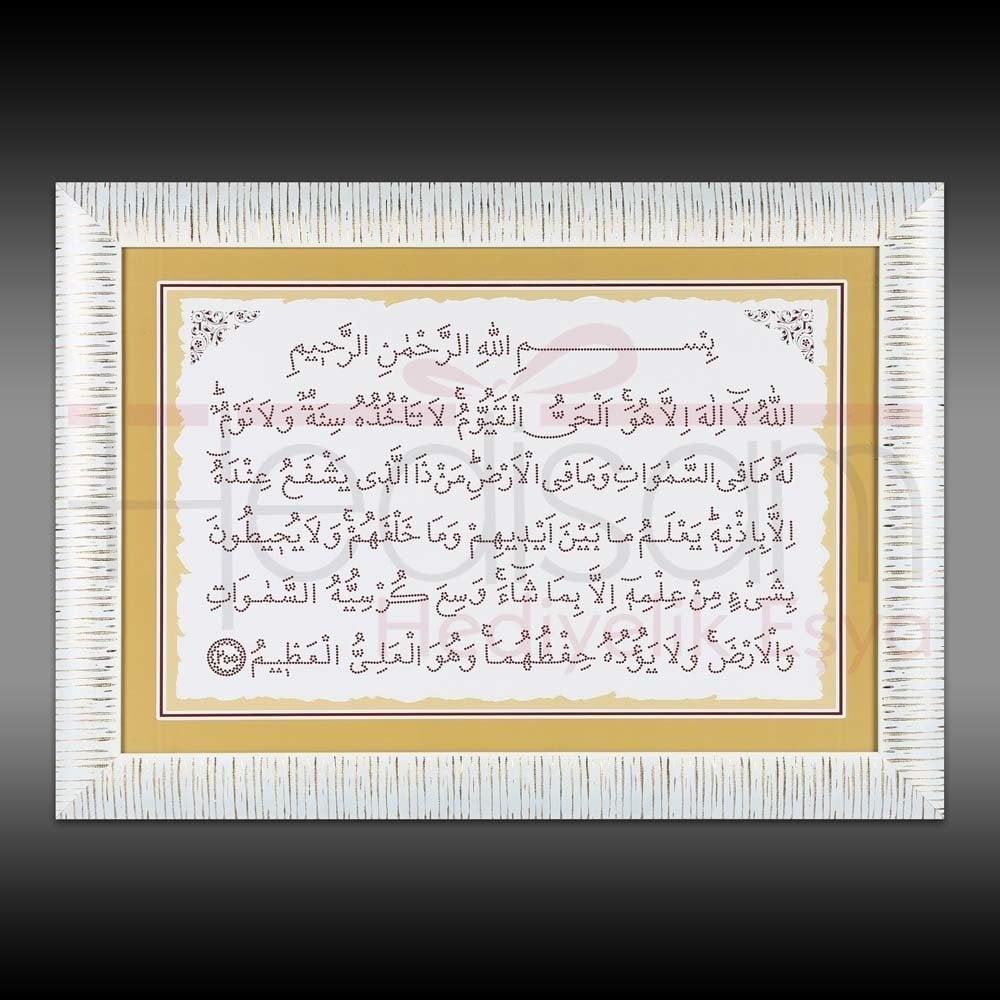 بِسْمِ اللّٰهِ الرَّحْمٰنِ الرَّحٖيمِ
اَللّٰهُ لَٓا اِلٰهَ اِلَّا هُوَۚ اَلْحَيُّ الْقَيُّومُۚ لَا تَأْخُذُهُ سِنَةٌ وَلَا نَوْمٌۜ
لَهُ مَا فِي السَّمٰوَاتِ وَمَا فِي الْاَرْضِۜ مَنْ ذَا الَّذٖي يَشْفَعُ عِنْدَهُٓ
اِلَّا بِاِذْنِهٖۜ يَعْلَمُ مَا بَيْنَ اَيْدٖيهِمْ وَمَا خَلْفَهُمْۚ وَلَا يُحٖيطُونَ
بِشَيْءٍ مِنْ عِلْمِهٖٓ اِلَّا بِمَا شَٓاءَۚ وَسِعَ كُرْسِيُّهُ السَّمٰوَاتِ
وَالْاَرْضَۚ وَلَا يَؤُ۫دُهُ حِفْظُهُمَاۚ وَهُوَ الْعَلِيُّ الْعَظٖيمُ
Hedisam
Hediyelik Eşya